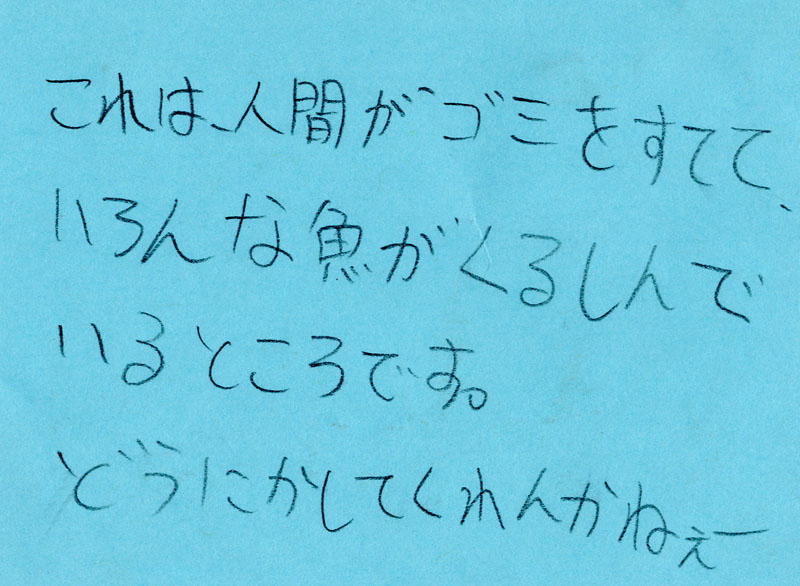 これは、人間がゴミをすてて、
いろんな魚がくるしんで
いるところです。
どうにかしてくれんかねぇー